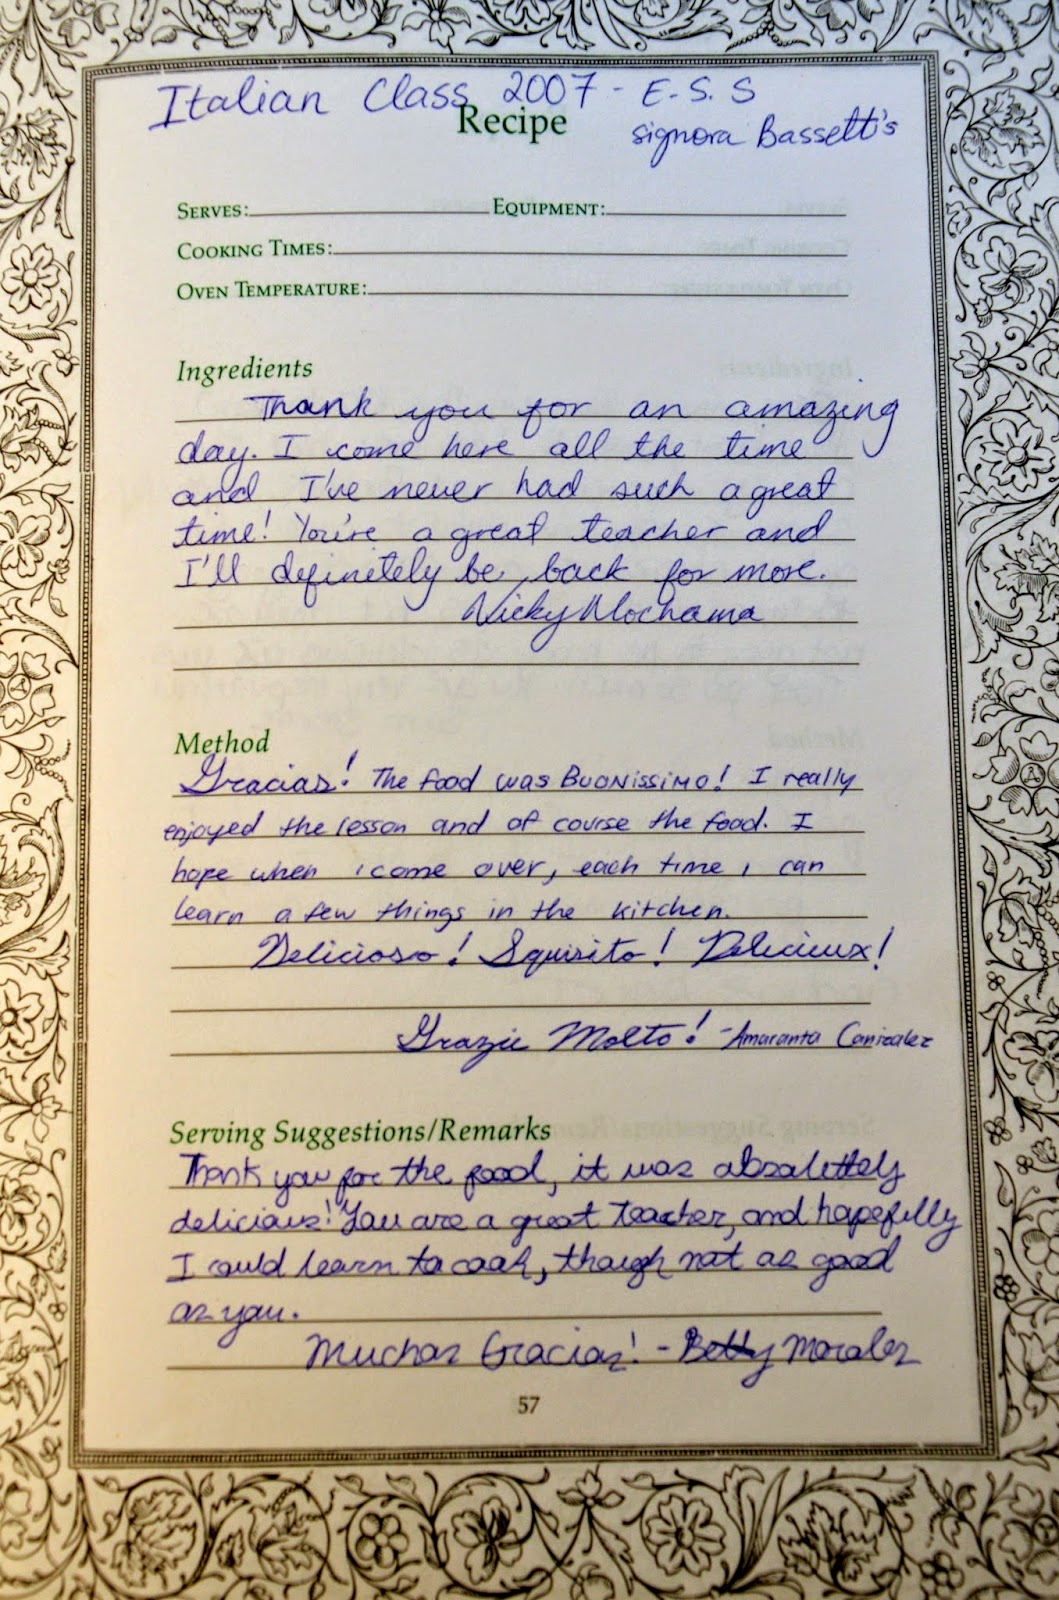 Italian Class 2007 - E.S.S
Recipe
signora Bassetti's
SERVES: EQUIPMENT:
COOKING TIMES:
OVEN TEMPERATURE:
Ingredients
Thank you for an amazing
day. I come here all the time
and I've never had such a great
time! You're a great teacher and
I'll definitely be back for more.
Vicky Mochama
Method
Gracias! The food was BUONISSIMO! I really
enjoyed the lesson and of course the food. I
hope when i come over, each time i can
learn a few things in the kitchen.
Delicioso! Squisito! Delicieux!
Grazie Molto! - Amaranta Canizalez
Serving Suggestions/Remarks
Thank you for the food, it was absolutely
delicious! You are a great teacher, and hopefully
I could learn to cook, though not as good
as you.
Muchas Gracias! - Betty Morales
57